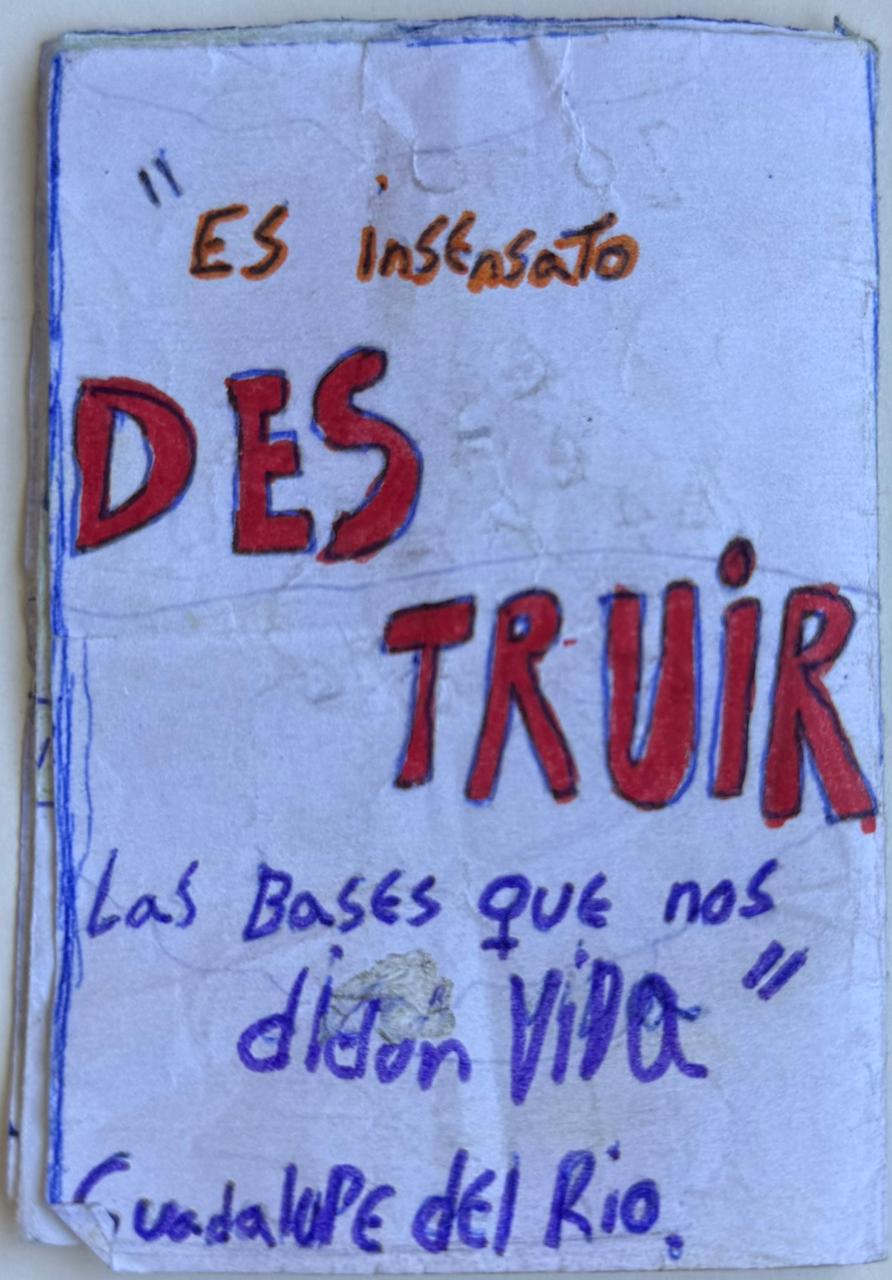 "Es insensato
DES
TRUiR
Las Bases que nos
didon ViDa"
Guadalupe del Rio.